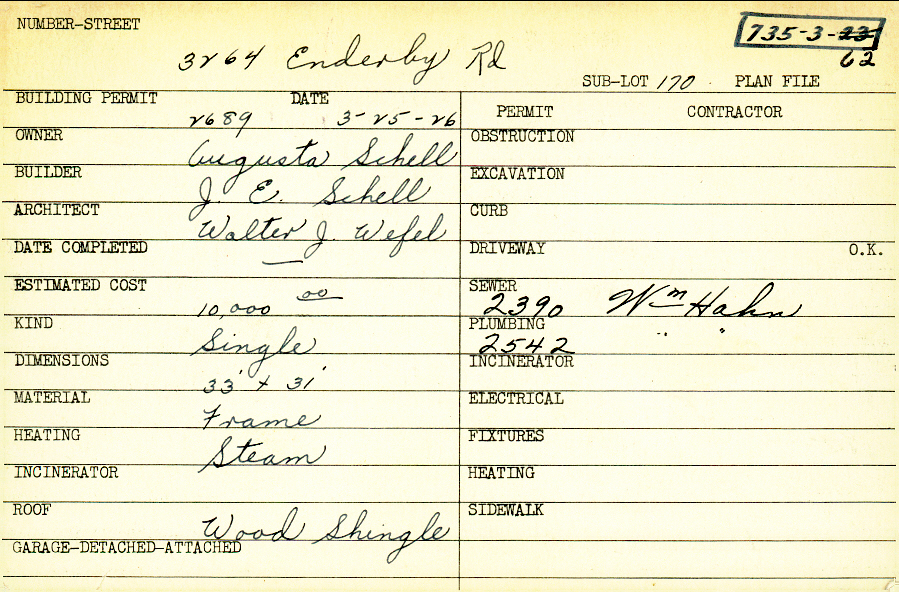 NUMBER-STREET
735-3-23
62
3264 Enderby Rd
SUB-LOT 170 PLAN FILE
BUILDING PERMIT DATE
2689 3-25-26
PERMIT CONTRACTOR
OWNER Augusta Schell
OBSTRUCTION
BUILDER J. E. Schell
EXCAVATION
ARCHITECT Walter J. Wefel
CURB
DATE COMPLETED —
DRIVEWAY O.K.
ESTIMATED COST 10,000 00
SEWER 2390 Wm Hahn
KIND Single
PLUMBING 2542 " "
DIMENSIONS 33' + 31'
INCINERATOR
MATERIAL Frame
ELECTRICAL
HEATING Steam
FIXTURES
INCINERATOR
HEATING
ROOF Wood Shingle
SIDEWALK
GARAGE-DETACHED-ATTACHED